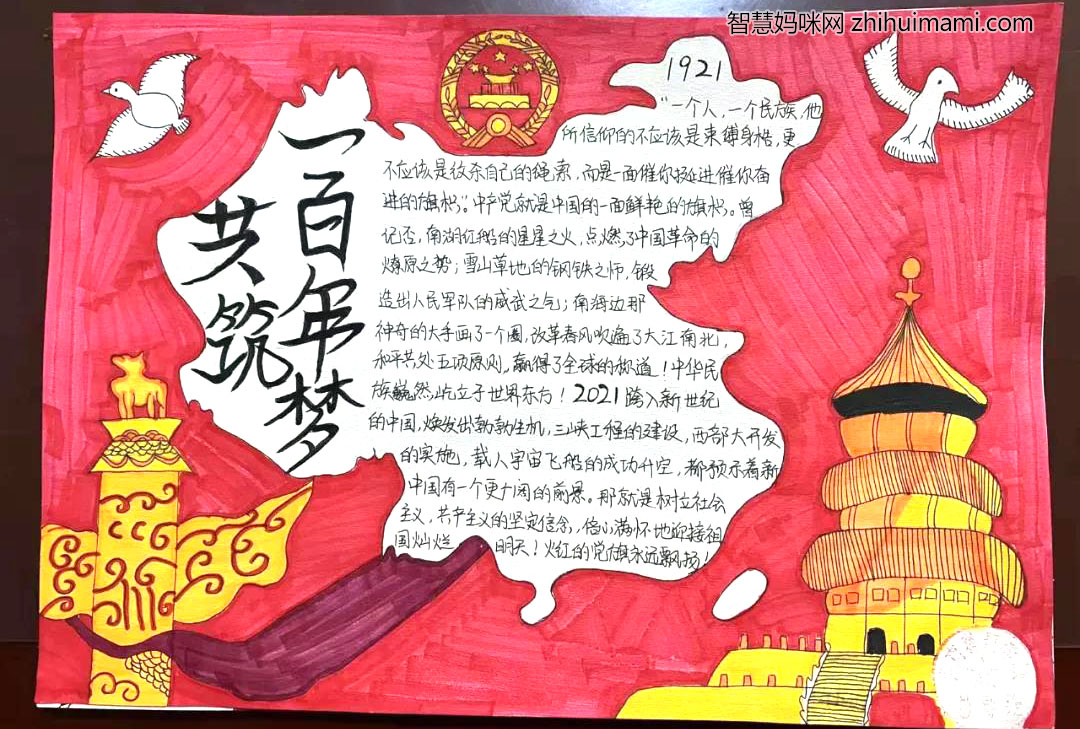 智慧妈咪网 zhihuimami.com
一百年梦
共筑
1921
"一个人，一个民族，他
所信仰的不应该是束缚身格，更
不应该是绞杀自己的绳索，而是一面催你挺进催你奋
进的旗帜。"中产党就是中国的一面鲜艳的旗帜。曾
记否，南湖红船的星星之火，点燃了中国革命的
燎原之势；雪山草地的钢铁之师，锻
造出人民军队的威武之气；南海边那
神奇的大手画了一个圈，改革春风吹遍了大江南北，
和平共处五项原则，赢得了全球的称道！中华民
族巍然屹立于世界东方！2021跨入新世纪
的中国，焕发出勃勃生机，三峡工程的建设，西部大开发
的实施，载人宇宙飞船的成功升空，都预示着新
中国有一个更广阔的前景。那就是树立社会
主义，共产主义的坚定信念，信心满怀地迎接祖
国灿烂 明天！火红的党旗永远飘扬！